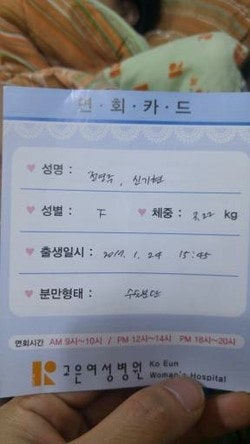 면·회·카·드
♥ 성명 : 전영주, 신기현
♥ 성별 : F ♥ 체중 : 3.22 kg
♥ 출생일시 : 2017. 1. 24 15:45
♥ 분만형태 : 수술분만
면회시간 AM 9시~10시 / PM 12시~14시 PM 18시~20시
고은여성병원 Ko Eun Women's Hospital